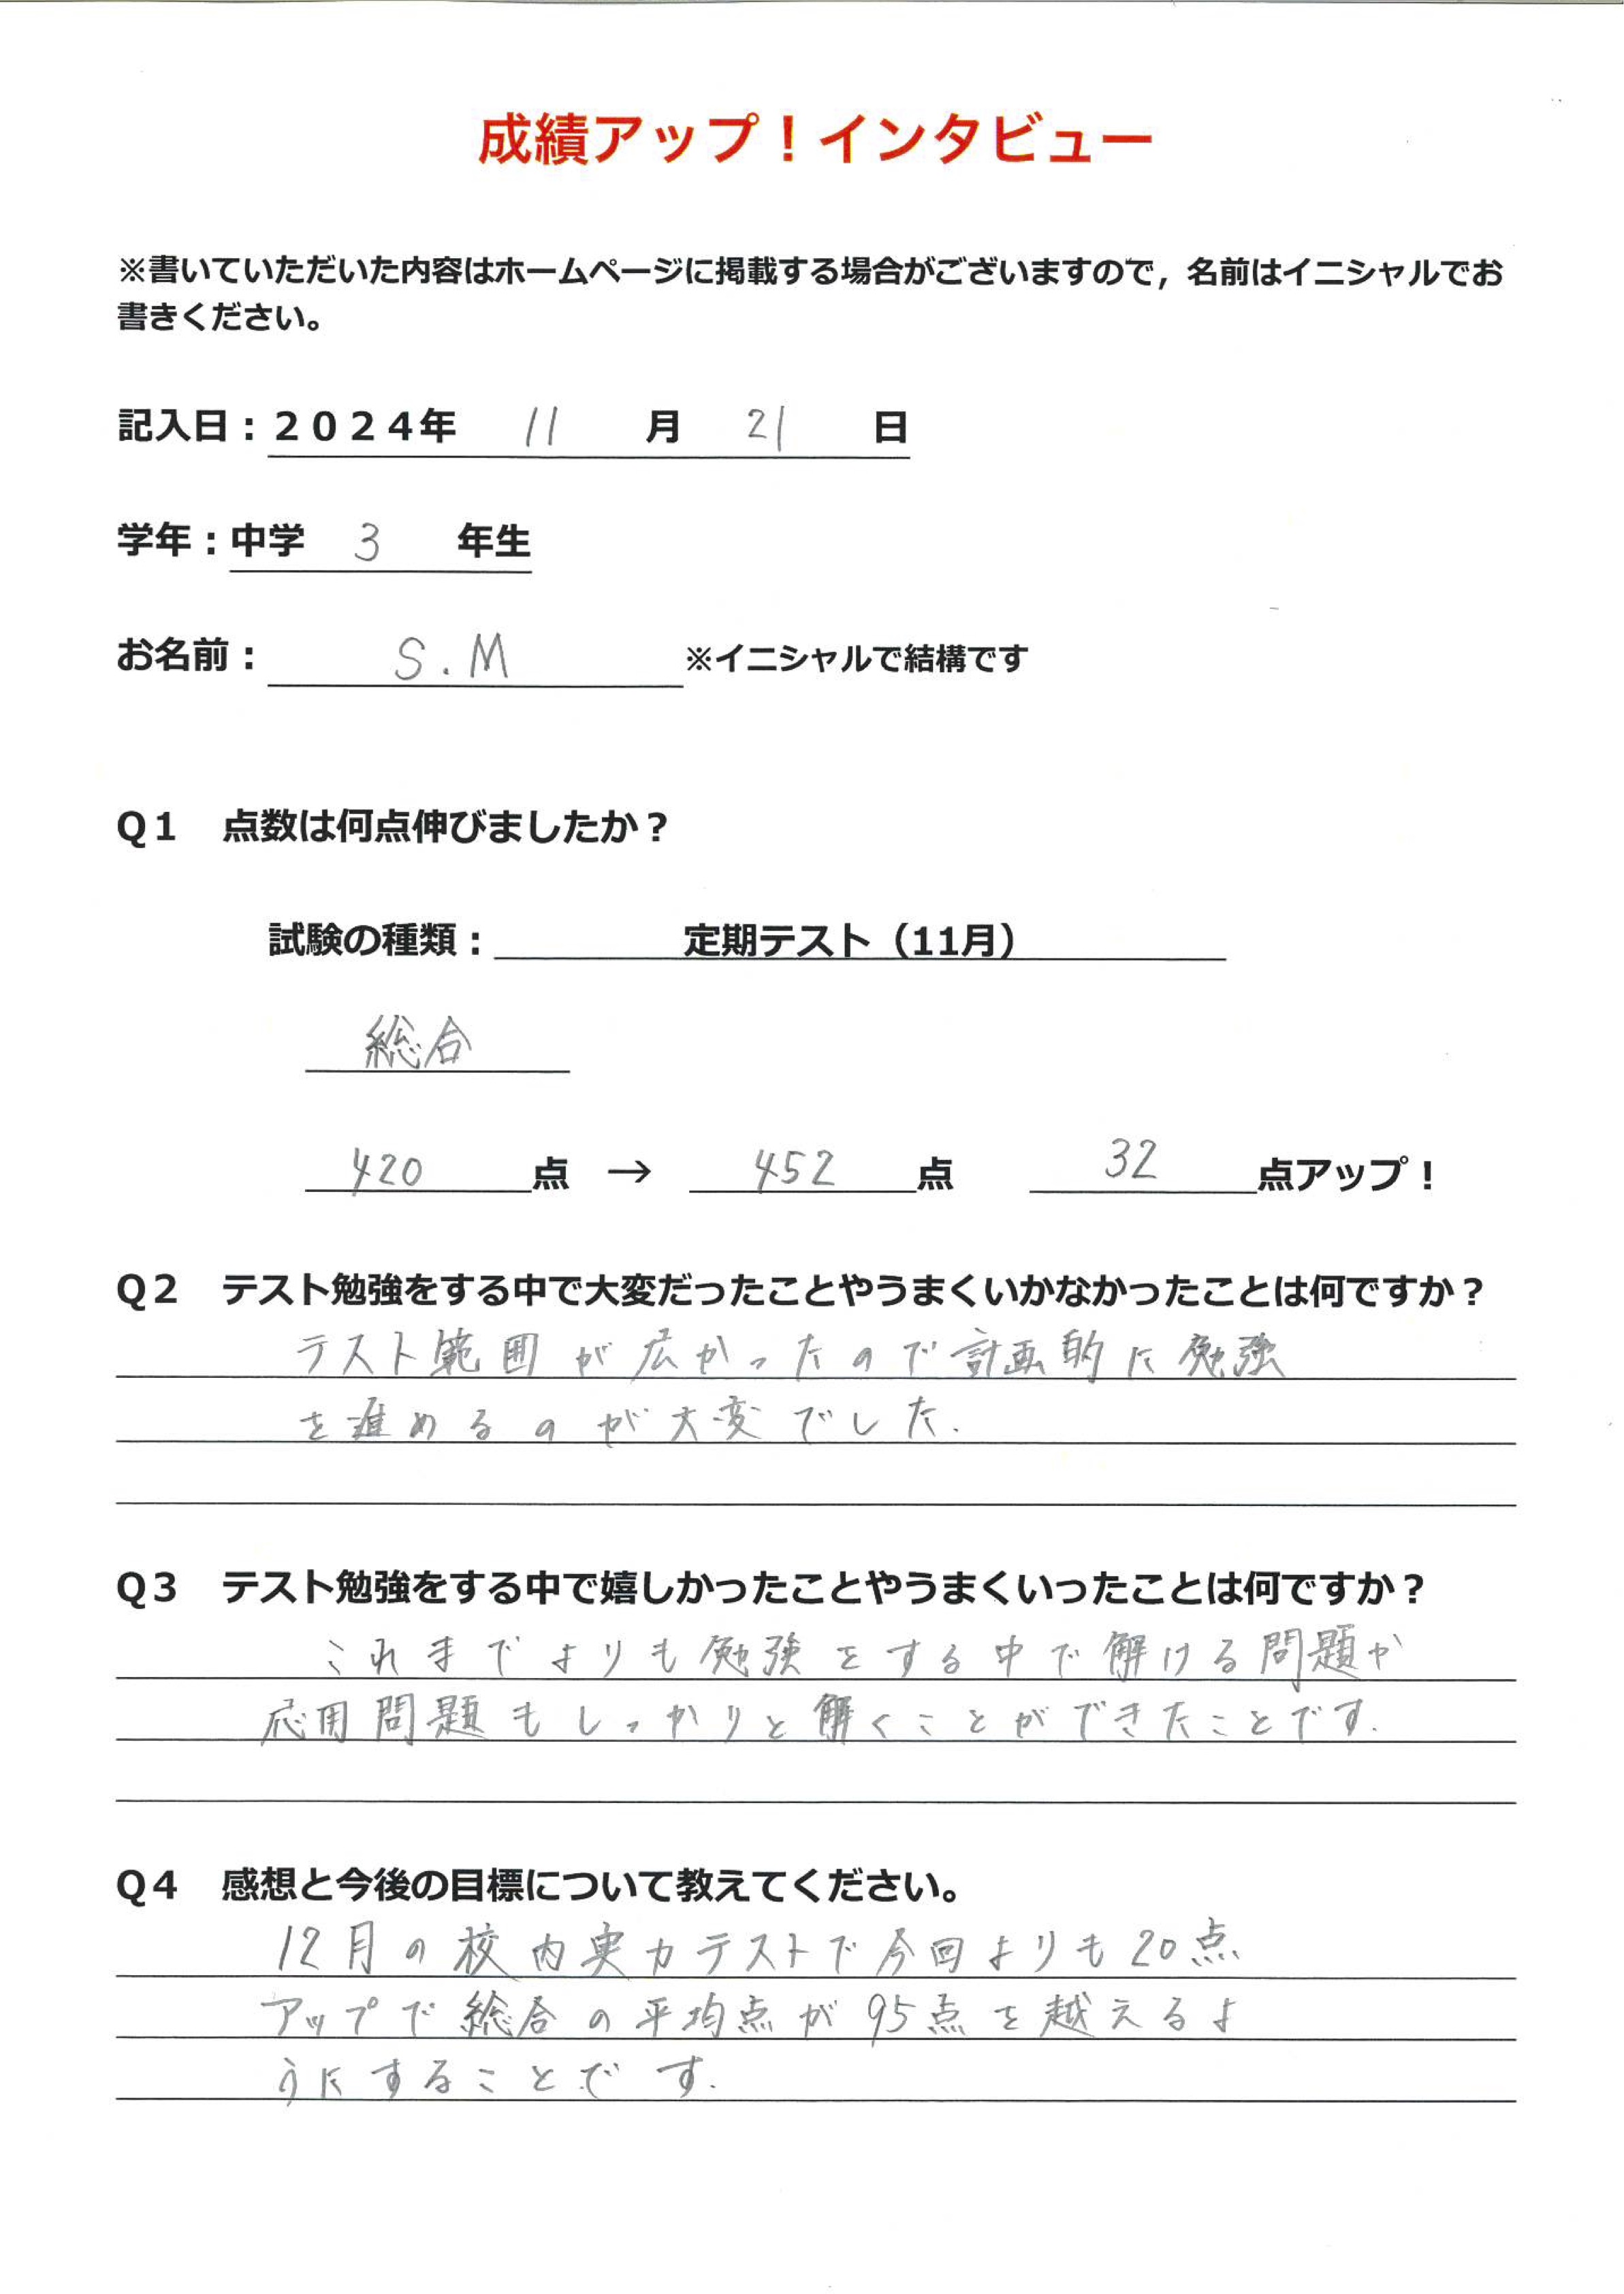 成績アップ！インタビュー
※書いていただいた内容はホームページに掲載する場合がございますので，名前はイニシャルでお
書きください。
記入日：２０２４年 11 月 21 日
学年：中学 3 年生
お名前： S.M ※イニシャルで結構です
Ｑ１ 点数は何点伸びましたか？
試験の種類： 定期テスト（11月）
総合
420 点 → 452 点 32 点アップ！
Ｑ２ テスト勉強をする中で大変だったことやうまくいかなかったことは何ですか？
テスト範囲が広かったので計画的に勉強
を進めるのが大変でした.
Ｑ３ テスト勉強をする中で嬉しかったことやうまくいったことは何ですか？
これまでよりも勉強をする中で解ける問題や
応用問題もしっかりと解くことができたことです.
Ｑ４ 感想と今後の目標について教えてください。
12月の校内実力テストで今回よりも20点
アップで総合の平均点が95点を越えるよ
うにすることです.